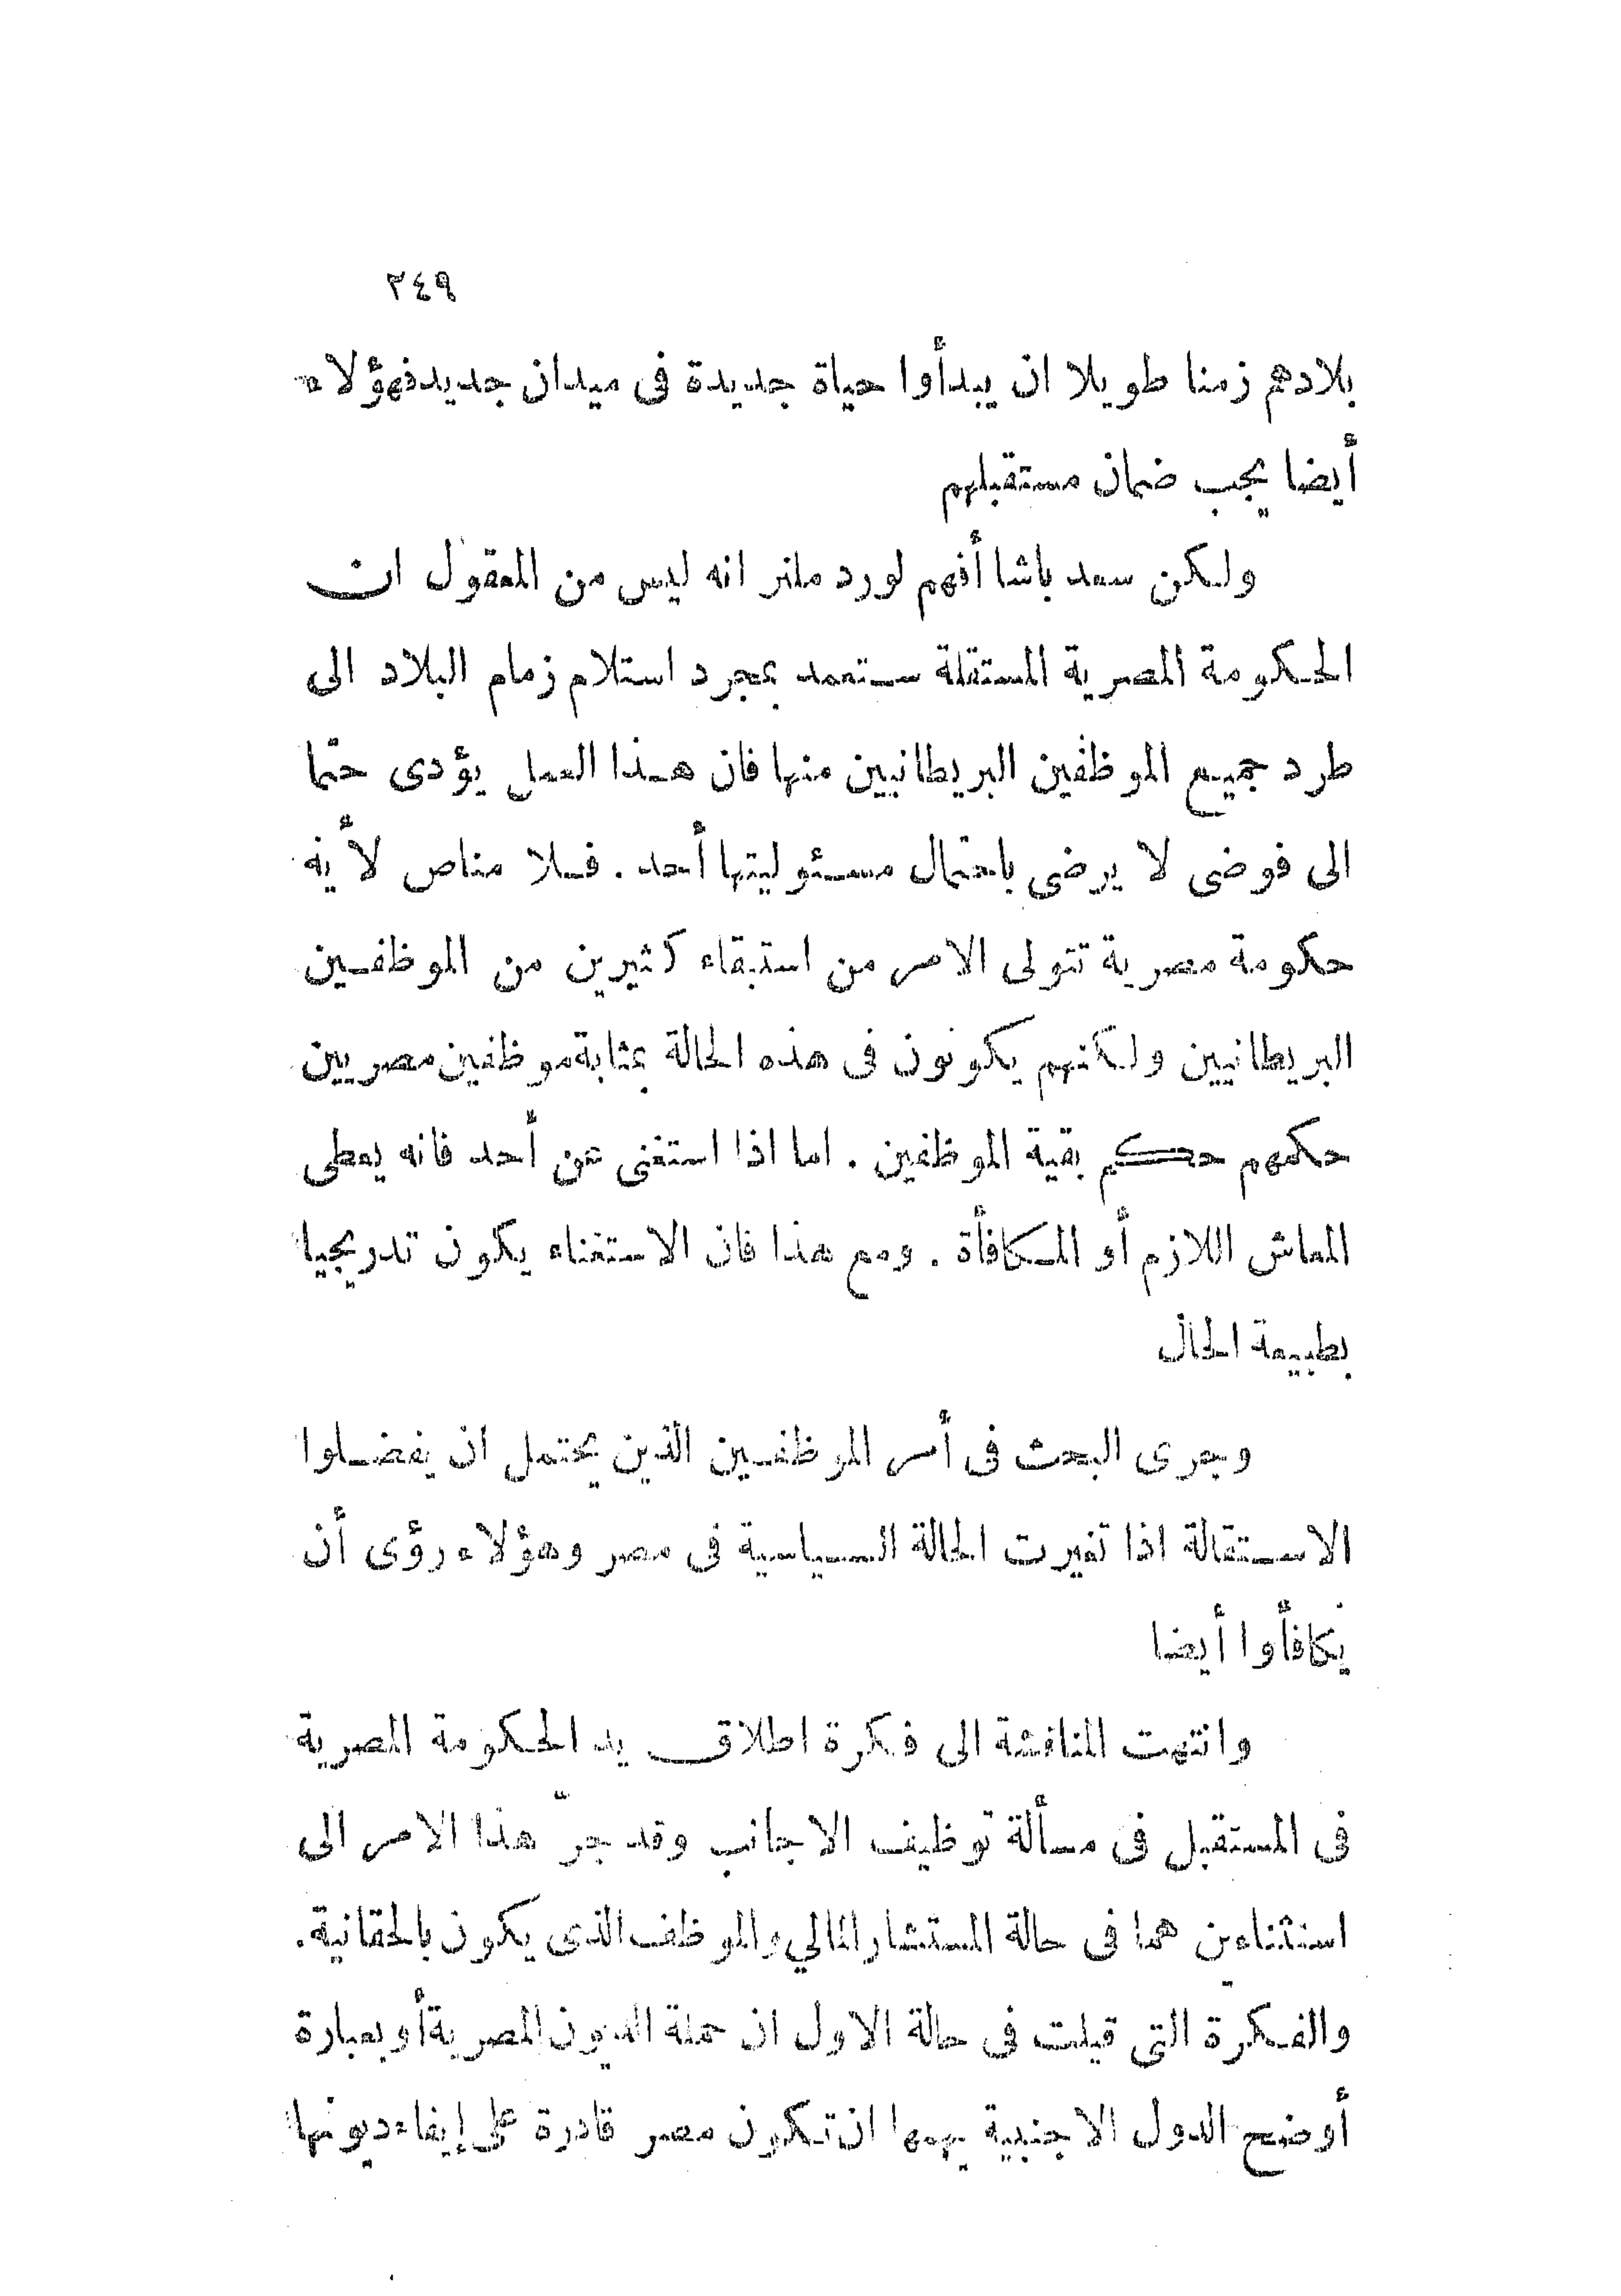 ٣٤٩
بلادهم زمنا طويلا ان يبدأوا حياة جديدة فى ميدان جديد فهؤلاء
أيضا يجب ضمان مستقبلهم
ولكن سعد باشا أفهم لورد ملنر انه ليس من المعقول ان
الحكومة المصرية المستقلة ستعمد بمجرد استلام زمام البلاد الى
طرد جميع الموظفين البريطانيين منها فان هذا العمل يؤدى حتما
الى فوضى لا يرضى باحتمال مسئوليتها أحد . فلا مناص لأية
حكومة مصرية تتولى الامر من استبقاء كثيرين من الموظفين
البريطانيين ولكنهم يكونون فى هذه الحالة بمثابة موظفين مصريين
حكمهم حكم بقية الموظفين . اما اذا استغنى عن أحد فانه يعطى
المعاش اللازم أو المكافأة . ومع هذا فان الاستغناء يكون تدريجيا
بطبيعة الحال
وجرى البحث فى أمر الموظفين الذين يحتمل ان يفضلوا
الاستقالة اذا تغيرت الحالة السياسية فى مصر وهؤلاء رؤى أن
يكافأوا أيضا
وانتهت المناقشة الى فكرة اطلاق يد الحكومة المصرية
فى المستقبل فى مسألة توظيف الاجانب وقد جرّ هذا الامر الى
استثناءين هما فى حالة المستشار المالي والموظف الذى يكون بالحقانية.
والفكرة التى قيلت فى حالة الاول ان حملة الديون المصرية أو بعبارة
أوضح الدول الاجنبية يهمها ان تكون مصر قادرة على إيفاء ديونها